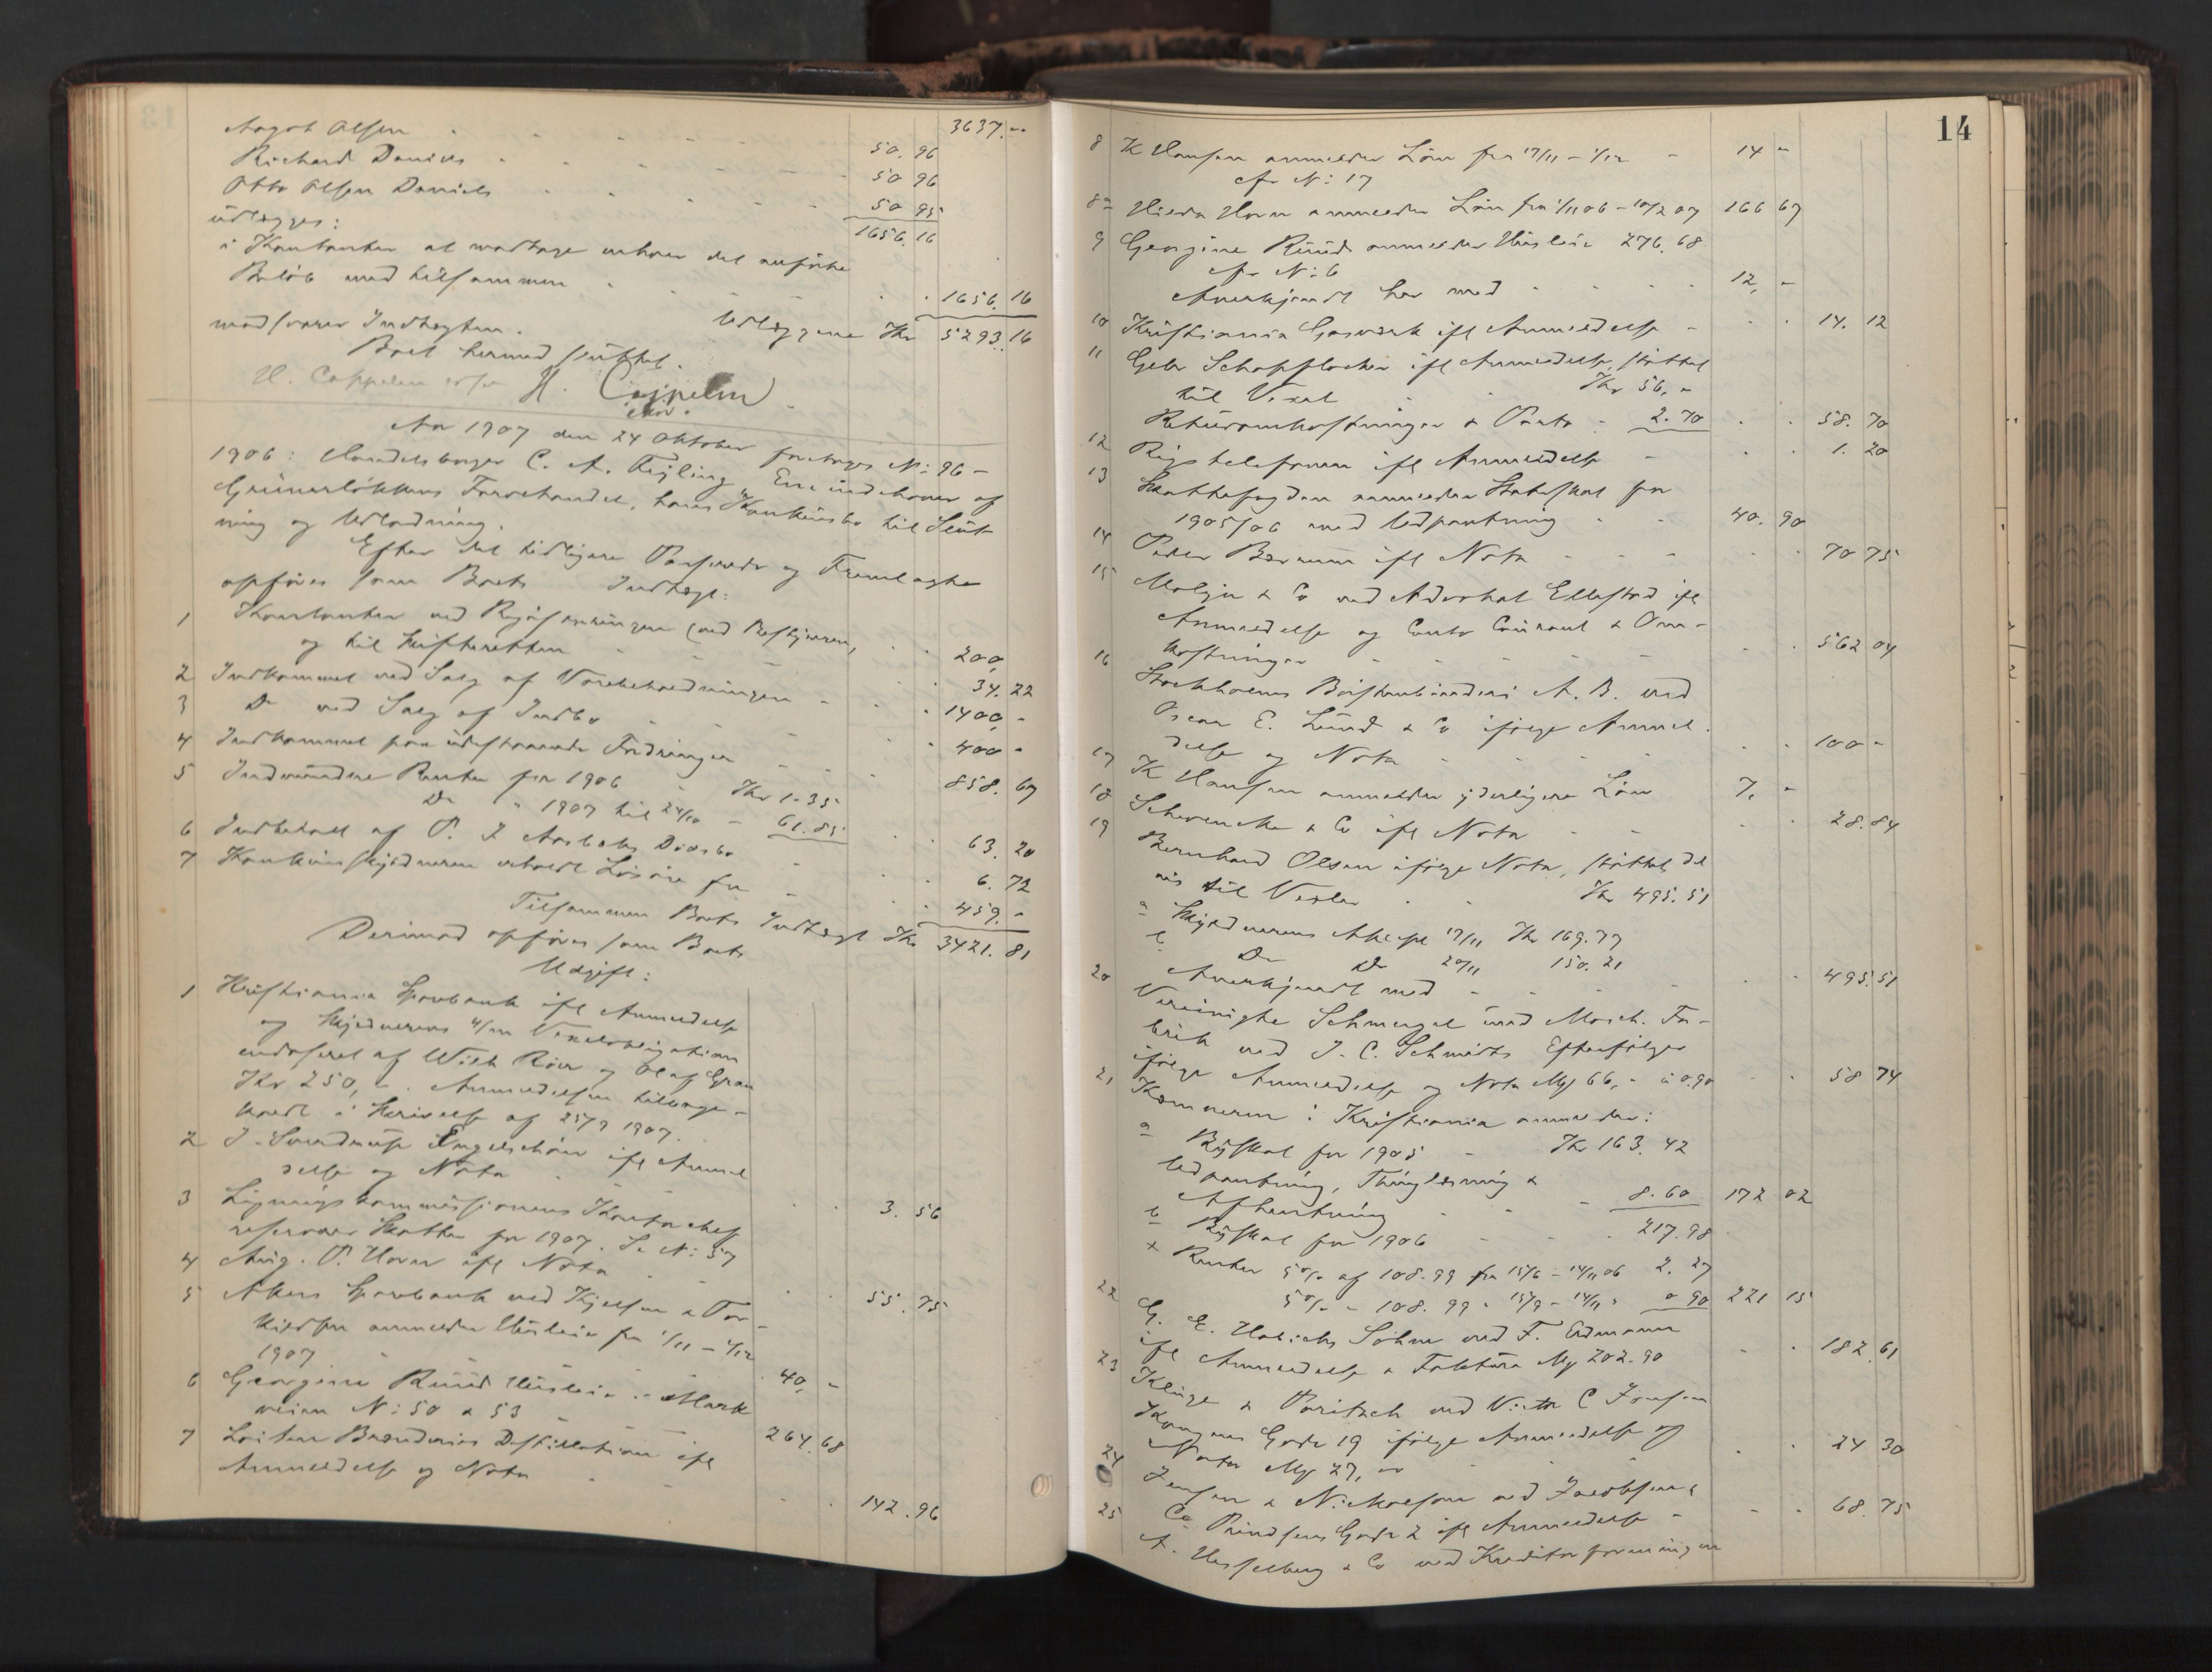 Aagot Olsen 3637.-
Richard Daniels 50.96
Otto Olsen Daniels 50 96
udlægges: 50 95
1656.16
i Kontanter at modtage enhver det anførte
Beløb med tilsammen 1656.16
modsvarer Indtægten. Udlæggene Kr 5293.16
Boet hermed sluttet.
H. Coppelen
Aar 1907 den 24 Oktober foretoges No: 96 -
1906: Handelsborger C. A. Eneindehaver af
Grünerløkkens Farvehandel, hans Konkursbo til Slut-
ning og Udlodning.
Efter det tidligere Passerede og Fremlagte
opføres som Boets Indtægt:
1 Kontanter ved Registreringen (ved Bestyreren,
og til Skifteretten 200,
2 Indkommet ved Salg af Varebeholdningen 34.22
3 Do ved Salg af Indbo 1400 -
4 Indkommet paa udestaaende Fordringer 400 -
5 Indvundne Renter for 1906 Kr 1.35 858.67
Do " 1907 til 24/10 - 61.85
6 Indbetalt af P. J. Dødsbo 63.20
7 Konkursskyldneren erholdt Løsøre for 6.72
459.-
Tilsammen Boets Indtægt Kr 3421.81
Derimod opføres som Boets
Udgift:
1 Kristiania Sparebank ifl Anmeldelse
og Skyldnerens Vexelobligation
endosseret af Wilh Röer og Olaf Gran
Kr 250, -. Anmeldelsen tilbage-
kaldt i Skrivelse af 25/9 1907.
2 J. Engelschøn ifl Anmel
delse og Nota 3.56
3 Ligningskommissionens Kontorchef
reserverer Skatter for 1907. Se No: 57
4 Aug. P. Horn ifl Nota 55.75
5 Akers Sparebank ved Kjelsen & Tor-
kildsen anmelder Husleie fra 1/11 - 1/12
1907 40, -
6 Georgine Ruud Husleie i Mark
veien No: 50 & 53 264.68
7 Løiten Brænderies Destillation ifl
Anmeldelse og Nota 142.96
14
8 K Hansen anmelder Løn fra 17/11 - 1/12 14 -
cfr No: 17
8a Hilda Horn anmelder Løn fra 1/11 06 - 10/2 07 166 67
9 Georgine Ruud anmelder Husleie 276.68
cfr No: 6
Anerkjendt her med 12, -
10 Kristiania Gasværk ifl Anmeldelse 14.12
11 Gebr Schopflocher ifl Anmeldelse, støttet
til Vexel Kr 56, -
Returomkostninger & Porto - 2.70 58.70
12 Rigstelefonen ifl Anmeldelse 1.20
13 Skattefogden anmelder Statsskat for
1905/06 med Udpantning 40.90
14 Peder Bærum ifl Nota 70 75
15 & Co ved Advokat Ellestad ifl
Anmeldelse og Conto Courant & Om-
kostninger 562 04
16 Stockholms Borstbinderi A. B. ved
Oscar E. Lund & Co ifølge Anmel
delse og Nota 100 -
17 K Hansen anmelder yderligere Løn 7, -
18 Schwencke & Co ifl Nota 28.84
19 Bernhard Olsen ifølge Nota, støttet del
vis til Vexler Kr 495.51
a Skyldnerens Akcept 17/11 Kr 169.77
b Do Do 20/11 150.21
Anerkjendt med 495.51
20 Vereinigte Schmirgel und Masch. Fa-
brik ved J. C. Schmidts Efterfølger
ifølge Anmeldelse og Nota Mk 66, - à 0.90 58 74
21 Kæmneren i Kristiania anmelder:
a Byskat for 1905 Kr 163.42
Udpantning, Thinglæsning &
Afhentning 8.60 172 02
b Byskat for 1906 217.98
x Renter 5% af 108.99 fra 15/6 - 14/11 06 2.27
5% - 108.99 " 15/9 - 14/11 " 0 90 221 15
22 G. E. Habichs Söhne ved F. Erdmann
ifl Anmeldelse & Faktura Mk 202.90 182.61
23 Kluge & Poritsch ved Victor C Jensen
Kongens Gade 19 ifølge Anmeldelse og
Nota Mk 27, - 24 30
24 Jensen & Nicolaisen ved Jacobsen &
Co Prindsens Gade 2 ifl Anmeldelse 68.75
25 A. Hesselberg & Co ved Kreditorforeningen